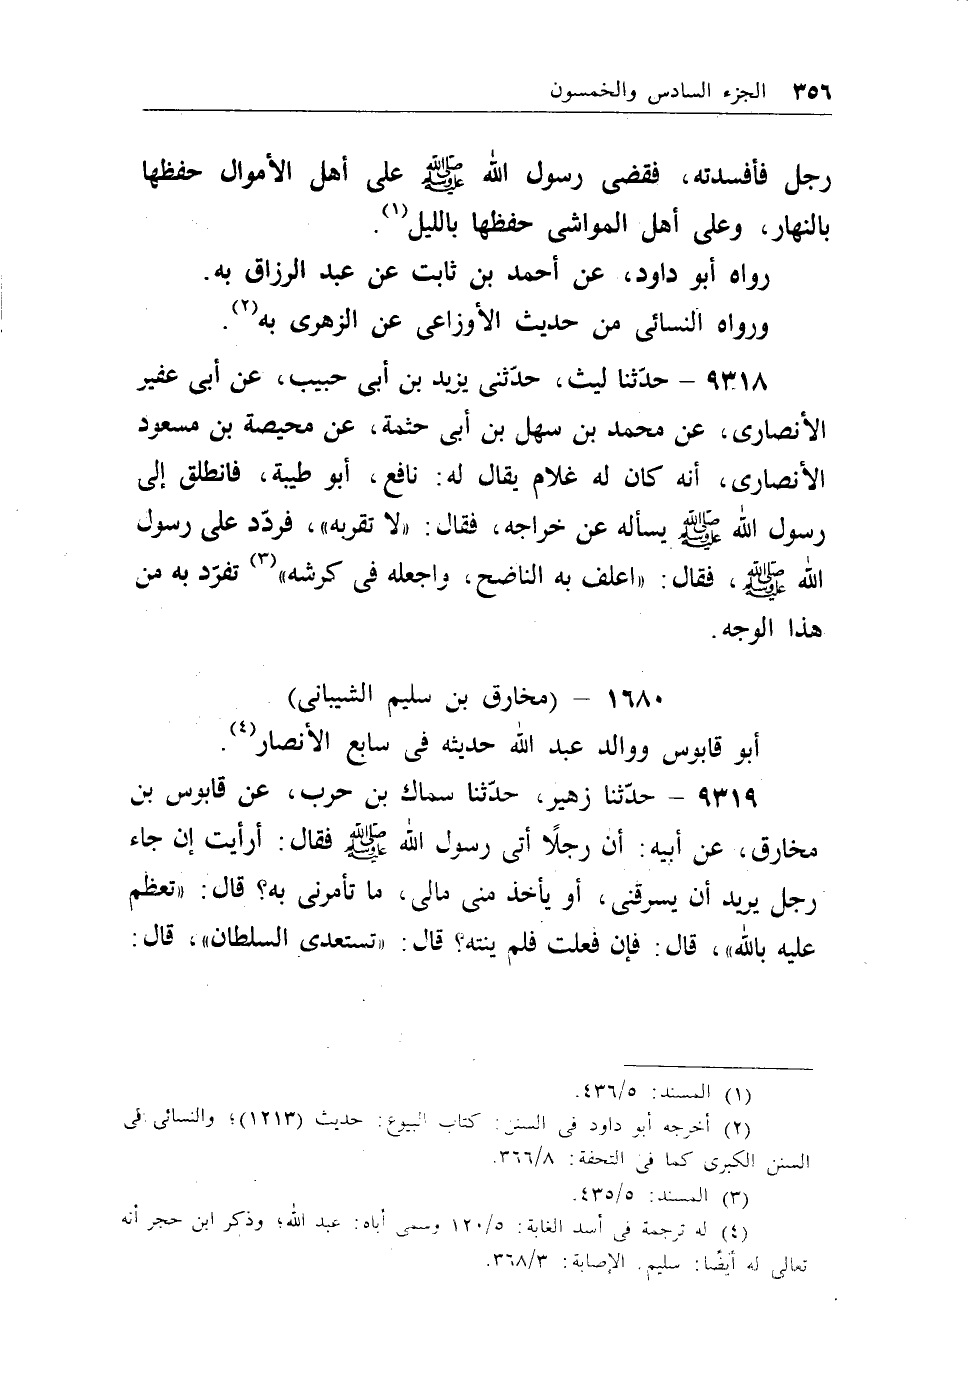 ٣٥٦ الجزء السادس والخمسون
رجل فأفسدته، فقضى رسول الله ﷺ على أهل الأموال حفظها
بالنهار، وعلى أهل المواشى حفظها بالليل(١).
رواه أبو داود، عن أحمد بن ثابت عن عبد الرزاق به.
ورواه النسائى من حديث الأوزاعى عن الزهرى به(٢).
٩٣١٨ – حدّثنا ليث، حدّثنى يزيد بن أبى حبيب، عن أبى عفير
الأنصارى، عن محمد بن سهل بن أبى حثمة، عن محيصة بن مسعود
الأنصارى، أنه كان له غلام يقال له: نافع، أبو طيبة، فانطلق إلى
رسول الله ﷺ يسأله عن خراجه، فقال: «لا تقربه»، فردّد على رسول
الله ﷺ، فقال: «اعلف به الناضح، واجعله فى كرشه»(٣) تفرّد به من
هذا الوجه.
١٦٨٠ – (مخارق بن سليم الشيبانى)
أبو قابوس ووالد عبد الله حديثه فى سابع الأنصار(٤).
٩٣١٩ – حدّثنا زهير، حدّثنا سماك بن حرب، عن قابوس بن
مخارق، عن أبيه: أن رجلًا أتى رسول الله ﷺ فقال: أرأيت إن جاء
رجل يريد أن يسرقنى، أو يأخذ منى مالى، ما تأمرنى به؟ قال: «تعظم
عليه بالله»، قال: فإن فعلت فلم ينته؟ قال: «تستعدى السلطان»، قال:
(١) المسند: ٤٣٦/٥.
(٢) أخرجه أبو داود فى السنن: كتاب البيوع: حديث (١٢١٣)؛ والنسائى فى
السنن الكبرى كما فى التحفة: ٣٦٦/٨.
(٣) المسند: ٤٣٥/٥.
(٤) له ترجمة فى أسد الغابة: ١٢٠/٥ وسمى أباه: عبد الله؛ وذكر ابن حجر أنه
تعالى له أيضًا: سليم. الإصابة: ٣٦٨/٣.